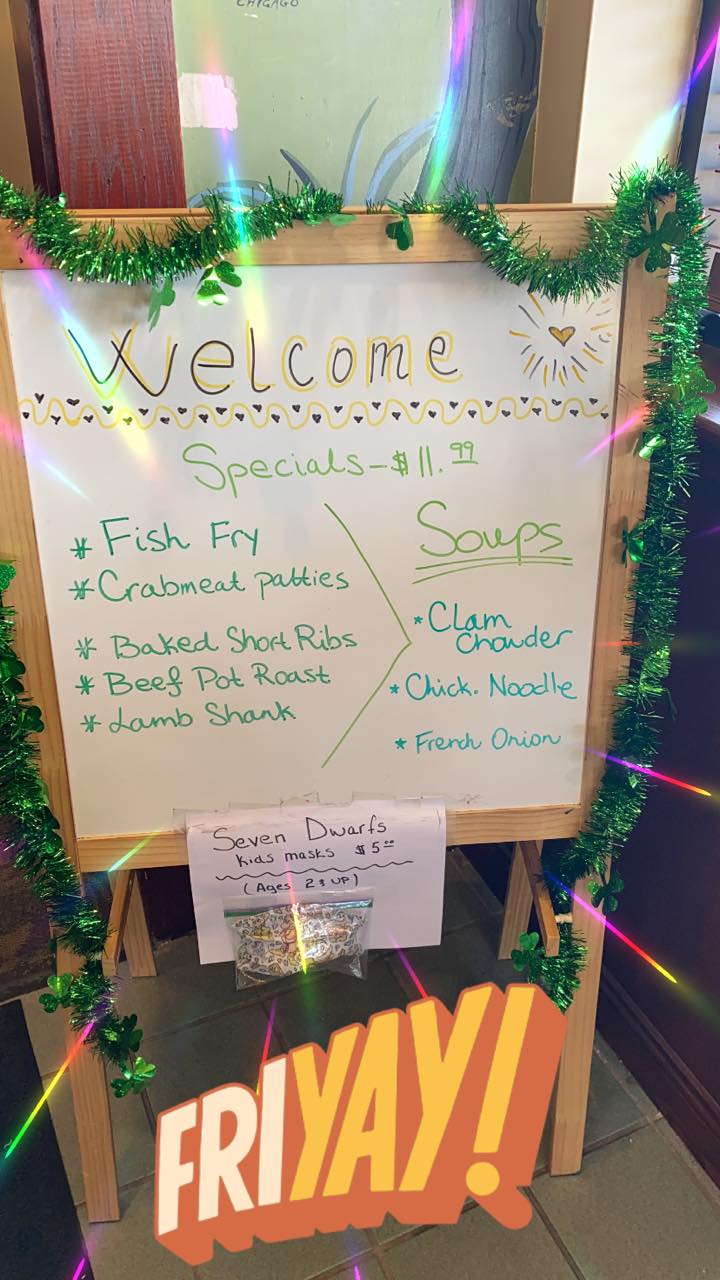 CHICAGO
Welcome
Specials - $11.99
* Fish Fry
* Crabmeat patties
* Baked Short Ribs
* Beef Pot Roast
* Lamb Shank
Soups
* Clam
Chowder
* Chick. Noodle
* French Onion
Seven Dwarfs
Kids masks $5.00
(Ages 2 & UP)
FRIYAY!